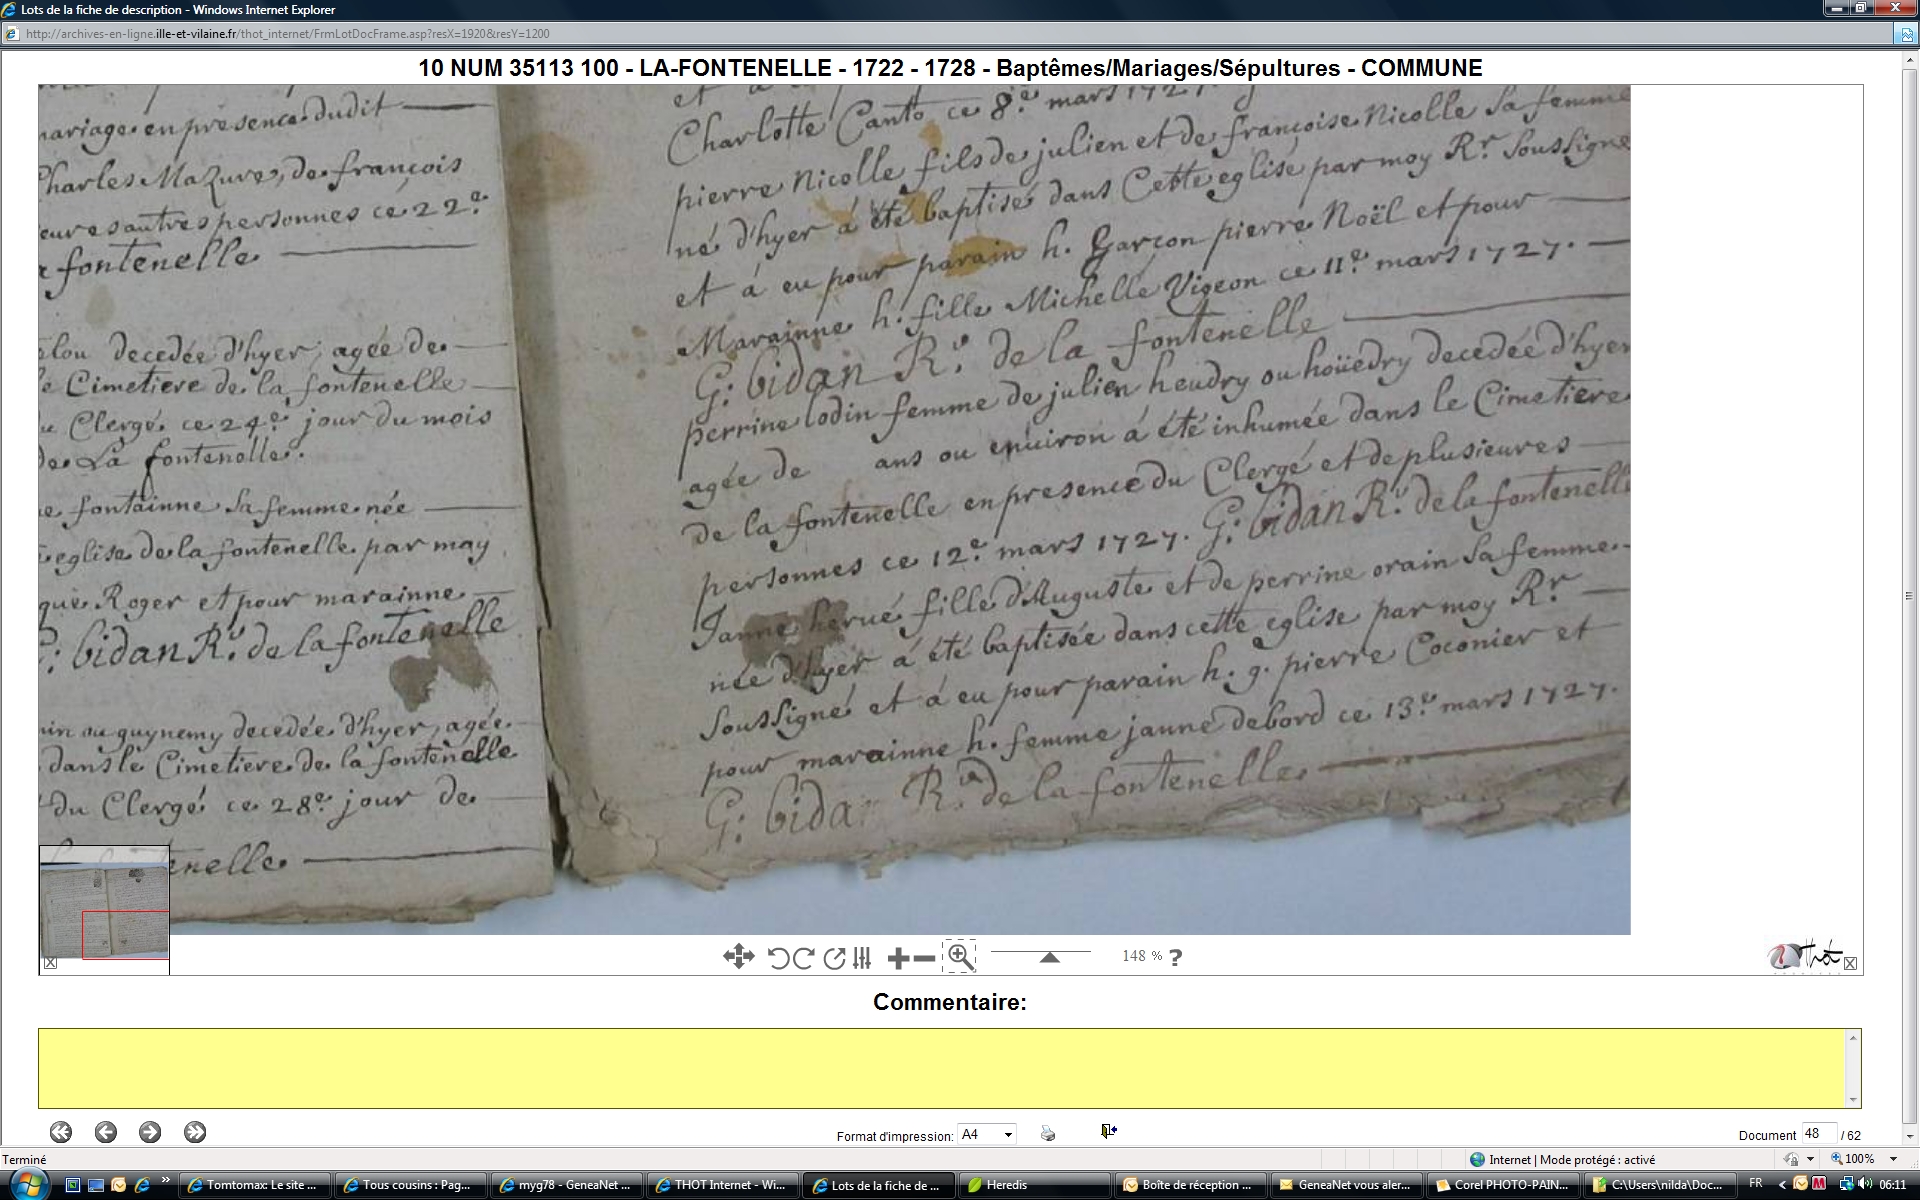 Lots de la fiche de description - Windows Internet Explorer
http://archives-en-ligne.ille-et-vilaine.fr/thot_internet/FrmLotDocFrame.asp?resX=1920&resY=1200
10 NUM 35113 100 - LA-FONTENELLE - 1722 - 1728 - Baptêmes/Mariages/Sépultures - COMMUNE
mariage en presence dudit
Charles Mazure, de françois
autres personnes ce 22e
fontenelle
decedée d'hyer, agée de
Cimetiere de la fontenelle
Clergé ce 24e jour du mois
de La fontenelle.
fontainne Sa femme née
eglise de la fontenelle par moy
Roger et pour marainne
G: bidan Rr de la fontenelle
ou guynemy decedée d'hyer, agée
dans le Cimetiere de la fontenelle
du Clergé ce 28e jour de
et a
Charlotte Canto ce 8e mars 1727
pierre Nicolle fils de julien et de françoise Nicolle Sa femme
né d'hyer á été baptisé dans Cette eglise par moy Rr Soussigné
et á eu pour parain h. Garçon pierre Noël et pour
Marainne h. fille Michelle Vigeon ce 11e mars 1727.
G: bidan Rr de la fontenelle
perrine lodin femme de julien heudry ou hoüedry decedée d'hyer
agée de ans ou enuiron á été inhumée dans le Cimetiere
de la fontenelle en presence du Clergé et de plusieures
personnes ce 12e mars 1727. G: bidan Rr de la fontenelle
Janne herué fille d'Auguste et de perrine orain Sa femme
née d'hyer á été baptisée dans cette eglise par moy Rr
Soussigné et á eu pour parain h. g. pierre Coconier et
pour marainne h. femme janne debord ce 13e mars 1727.
G: bidan Rr de la fontenelle
148 % ?
Thot
Commentaire:
Format d'impression: A4
Document 48 / 62
Terminé
Internet | Mode protégé : activé
100%
Tomtomax: Le site ...
Tous cousins : Pag...
myg78 - GeneaNet ...
THOT Internet - Wi...
Lots de la fiche de ...
Heredis
Boîte de réception ...
GeneaNet vous aler...
Corel PHOTO-PAIN...
C:\Users\nilda\Doc...
FR
06:11